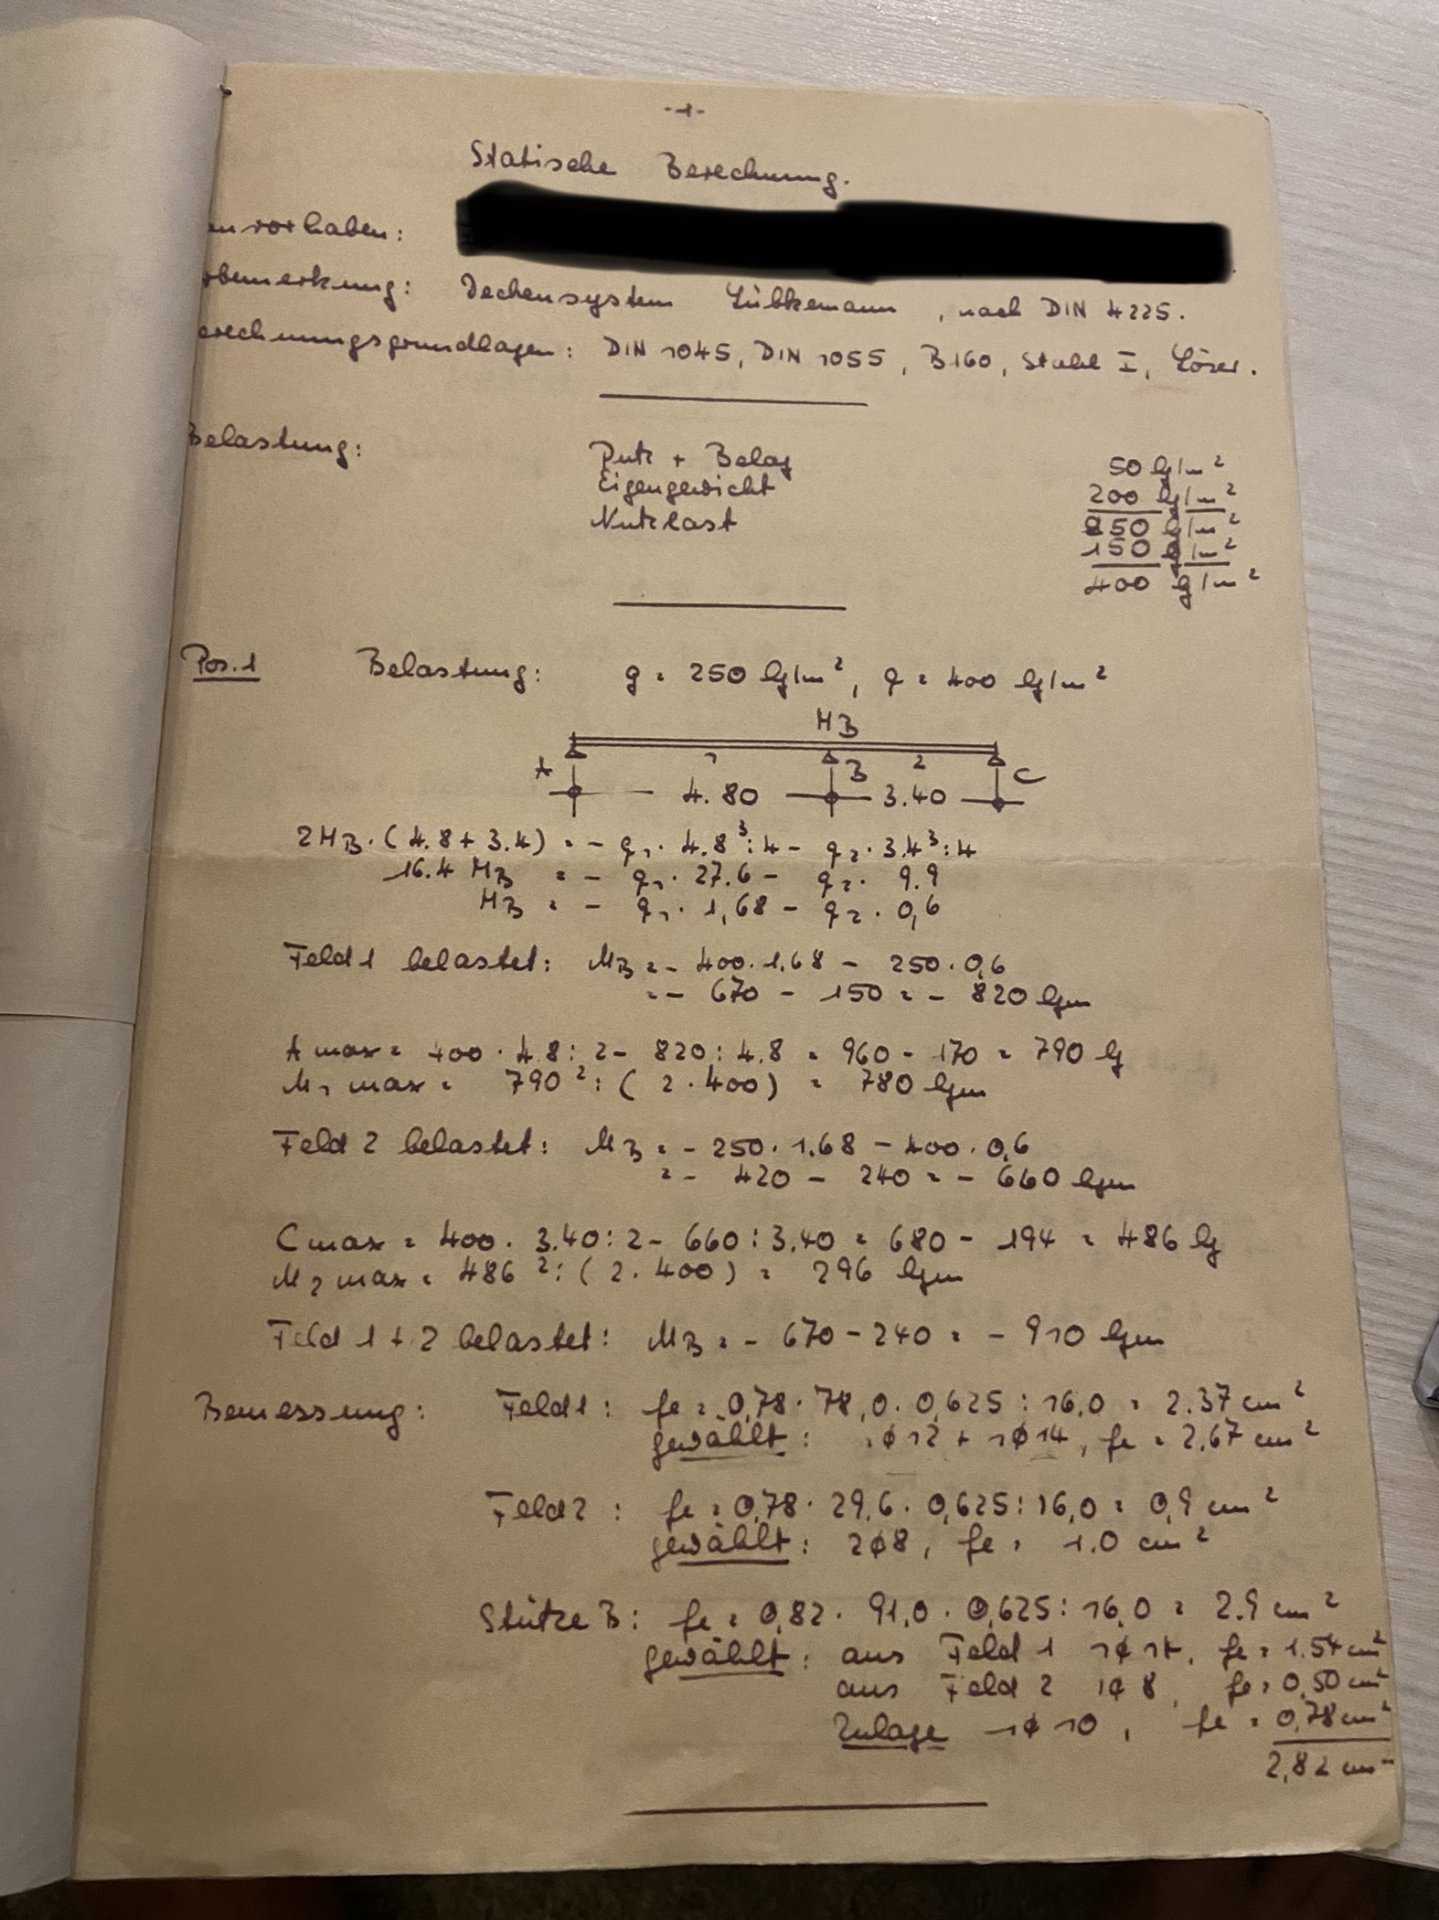 -1-
Statische Berechnung.
auvorhaben:
orbemerkung: Deckensystem Lübkemann, nach DIN 4225.
erechnungsgrundlagen: DIN 1045, DIN 1055, B160, Stahl I, Löser.
Belastung: Putz + Belag 50 kg/m²
Eigengewicht 200 kg/m²
250 kg/m²
Nutzlast 150 kg/m²
400 kg/m²
Pos. 1 Belastung: g = 250 kg/m², q = 400 kg/m²
MB
A 1 B 2 C
4.80 3.40
2MB·(4.8+3.4) = - q₁· 4.8³:4 - q₂· 3.4³:4
16.4 MB = - q₁· 27.6 - q₂· 9.9
MB = - q₁· 1,68 - q₂· 0,6
Feld 1 belastet: MB = - 400·1,68 - 250·0,6
= - 670 - 150 = - 820 kgm
A max = 400 · 4.8 : 2 - 820 : 4.8 = 960 - 170 = 790 kg
M₁ max = 790² : (2·400) = 780 kgm
Feld 2 belastet: MB = - 250·1,68 - 400·0,6
= - 420 - 240 = - 660 kgm
C max = 400 · 3.40 : 2 - 660 : 3.40 = 680 - 194 = 486 kg
M₂ max = 486² : (2·400) = 296 kgm
Feld 1 + 2 belastet: MB = - 670 - 240 = - 910 kgm
Bemessung: Feld 1: fe = 0,78 · 78,0 · 0,625 : 16,0 = 2.37 cm²
gewählt: 1ø12 + 1ø14, fe = 2,67 cm²
Feld 2: fe = 0,78 · 29,6 · 0,625 : 16,0 = 0,9 cm²
gewählt: 2ø8, fe = 1.0 cm²
Stütze B: fe = 0,82 · 91,0 · 0,625 : 16,0 = 2.9 cm²
gewählt: aus Feld 1 1ø14, fe = 1.54 cm²
aus Feld 2 1ø8, fe = 0,50 cm²
Zulage 1ø10, fe = 0,78 cm²
2,82 cm²